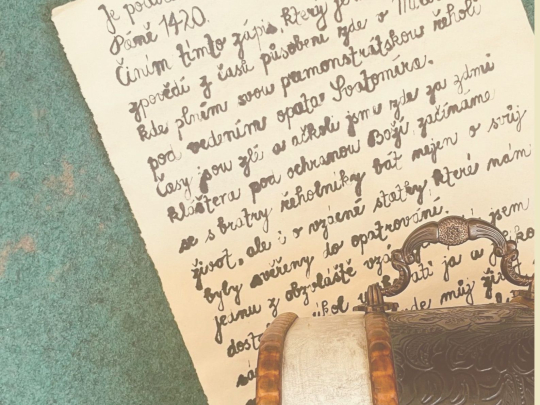 Je
Páně 1420.
Činím tímto zápis, který je
zpovědí z časů působení zde v
kde plním svou premonstrátskou řeholi
pod vedením opata Svatomíra.
Časy jsou zlé a ačkoli jsme zde za zdmi
kláštera pod ochranou Boží začínáme
se s bratry řeholníky bát nejen o svůj
život, ale i o vzácné statky, které nám
byly svěřeny do opatrování.
jednu z obzvláště jsem
úkol ja a
můj život